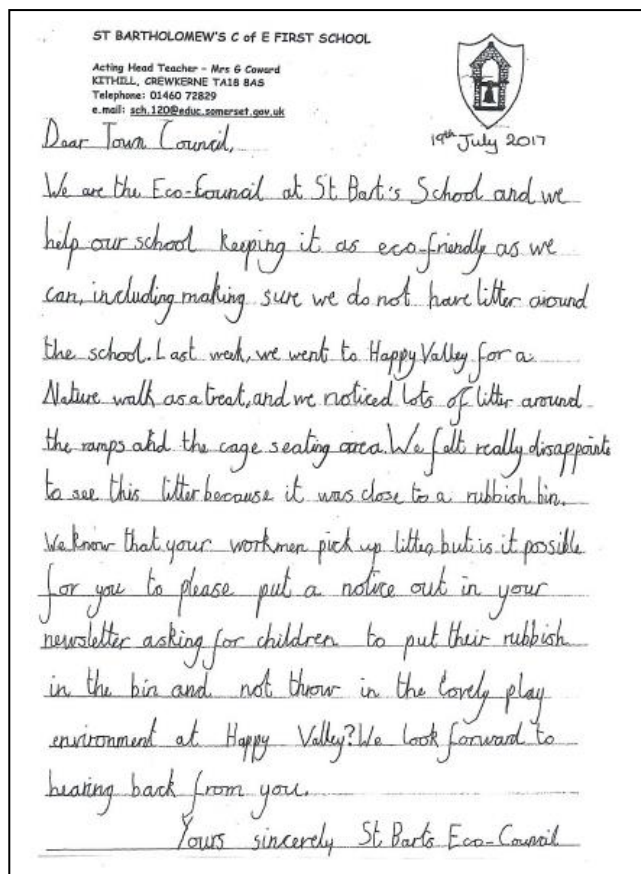 ST BARTHOLOMEW'S C of E FIRST SCHOOL
Acting Head Teacher - Mrs G Coward
KITHILL, CREWKERNE TA18 8AS
Telephone: 01460 72829
e.mail: sch.120@educ.somerset.gov.uk
19th July 2017
Dear Town Council,
We are the Eco-Council at St Bart's School and we
help our school keeping it as eco-friendly as we
can, including making sure we do not have litter around
the school. Last week, we went to Happy Valley for a
Nature walk as a treat, and we noticed lots of litter around
the ramps and the cage seating area. We felt really disappointe
to see this litter because it was close to a rubbish bin.
We know that your workmen pick up litter, but is it possible
for you to please put a notice out in your
newsletter asking for children to put their rubbish
in the bin and not throw in the lovely play
environment at Happy Valley? We look forward to
hearing back from you.
Yours sincerely St Barts Eco-Council